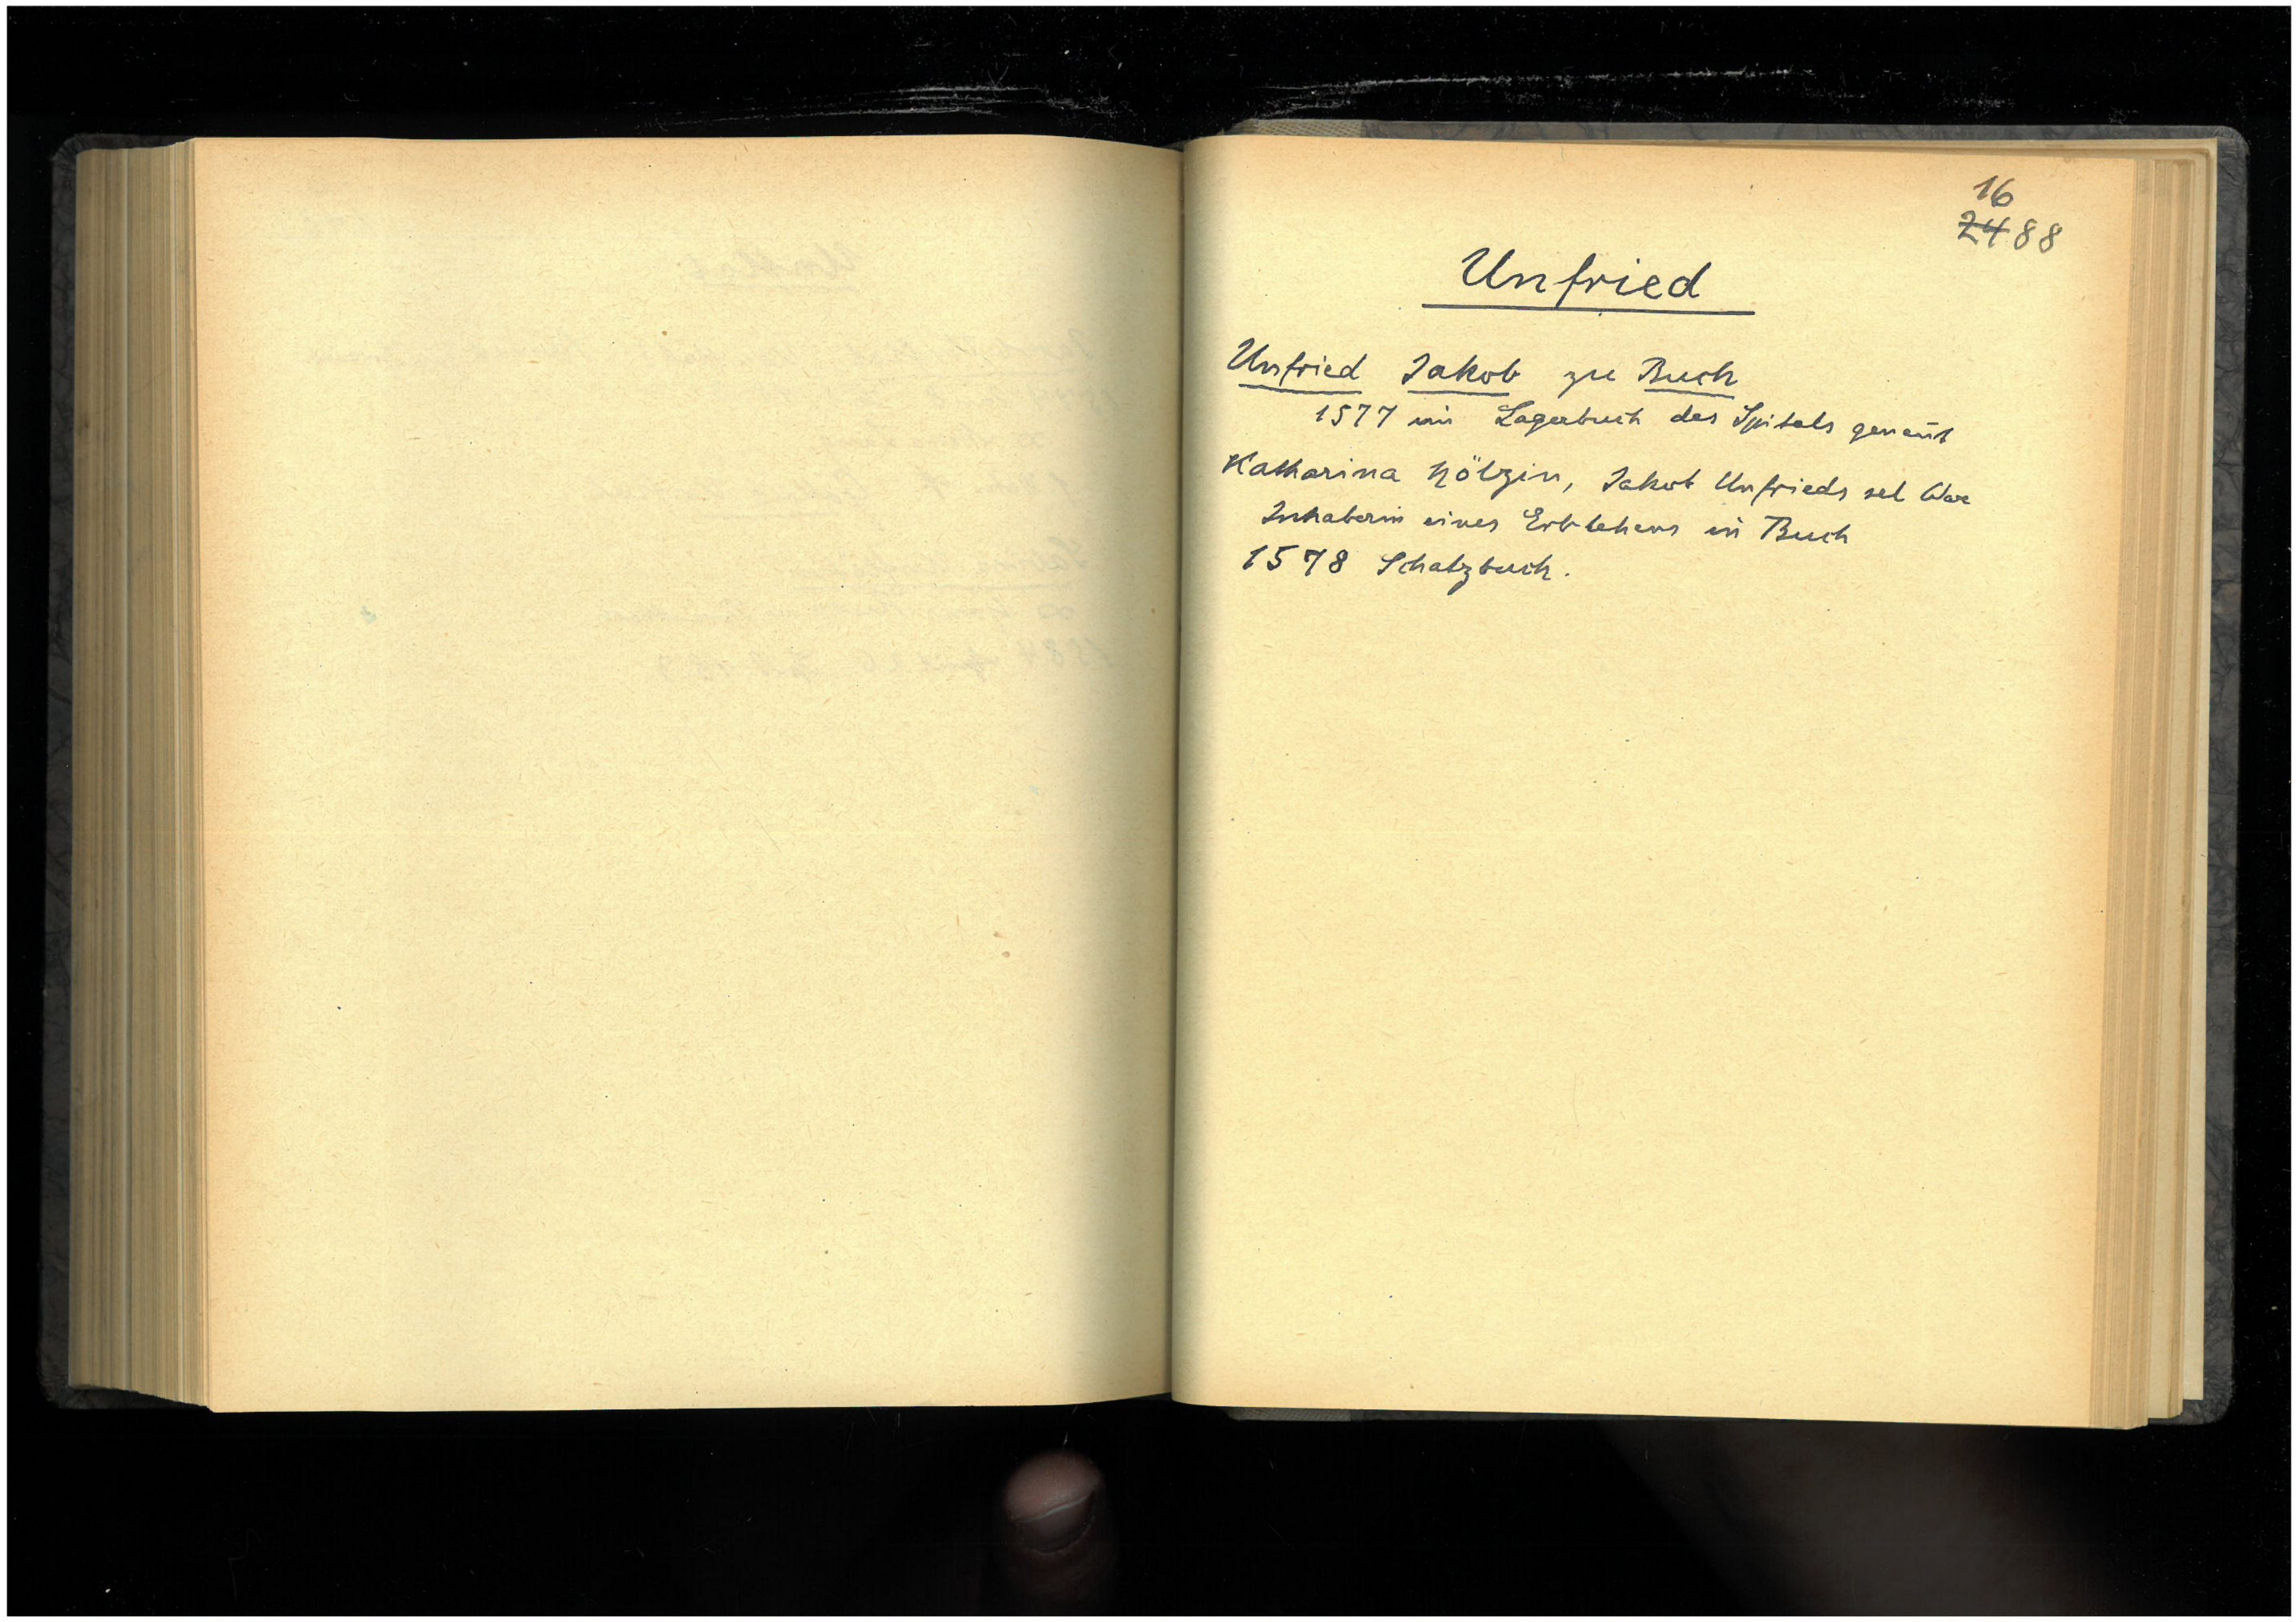 16
2488
Unfried
Unfried Jakob zu Buch
1577 im Lagerbuch des Spitals genan̄t
Katharina Hölzin, Jakob Unfrieds sel Wwe
Inhaberin eines Erblehens in Buch
1578 Schatzbuch.